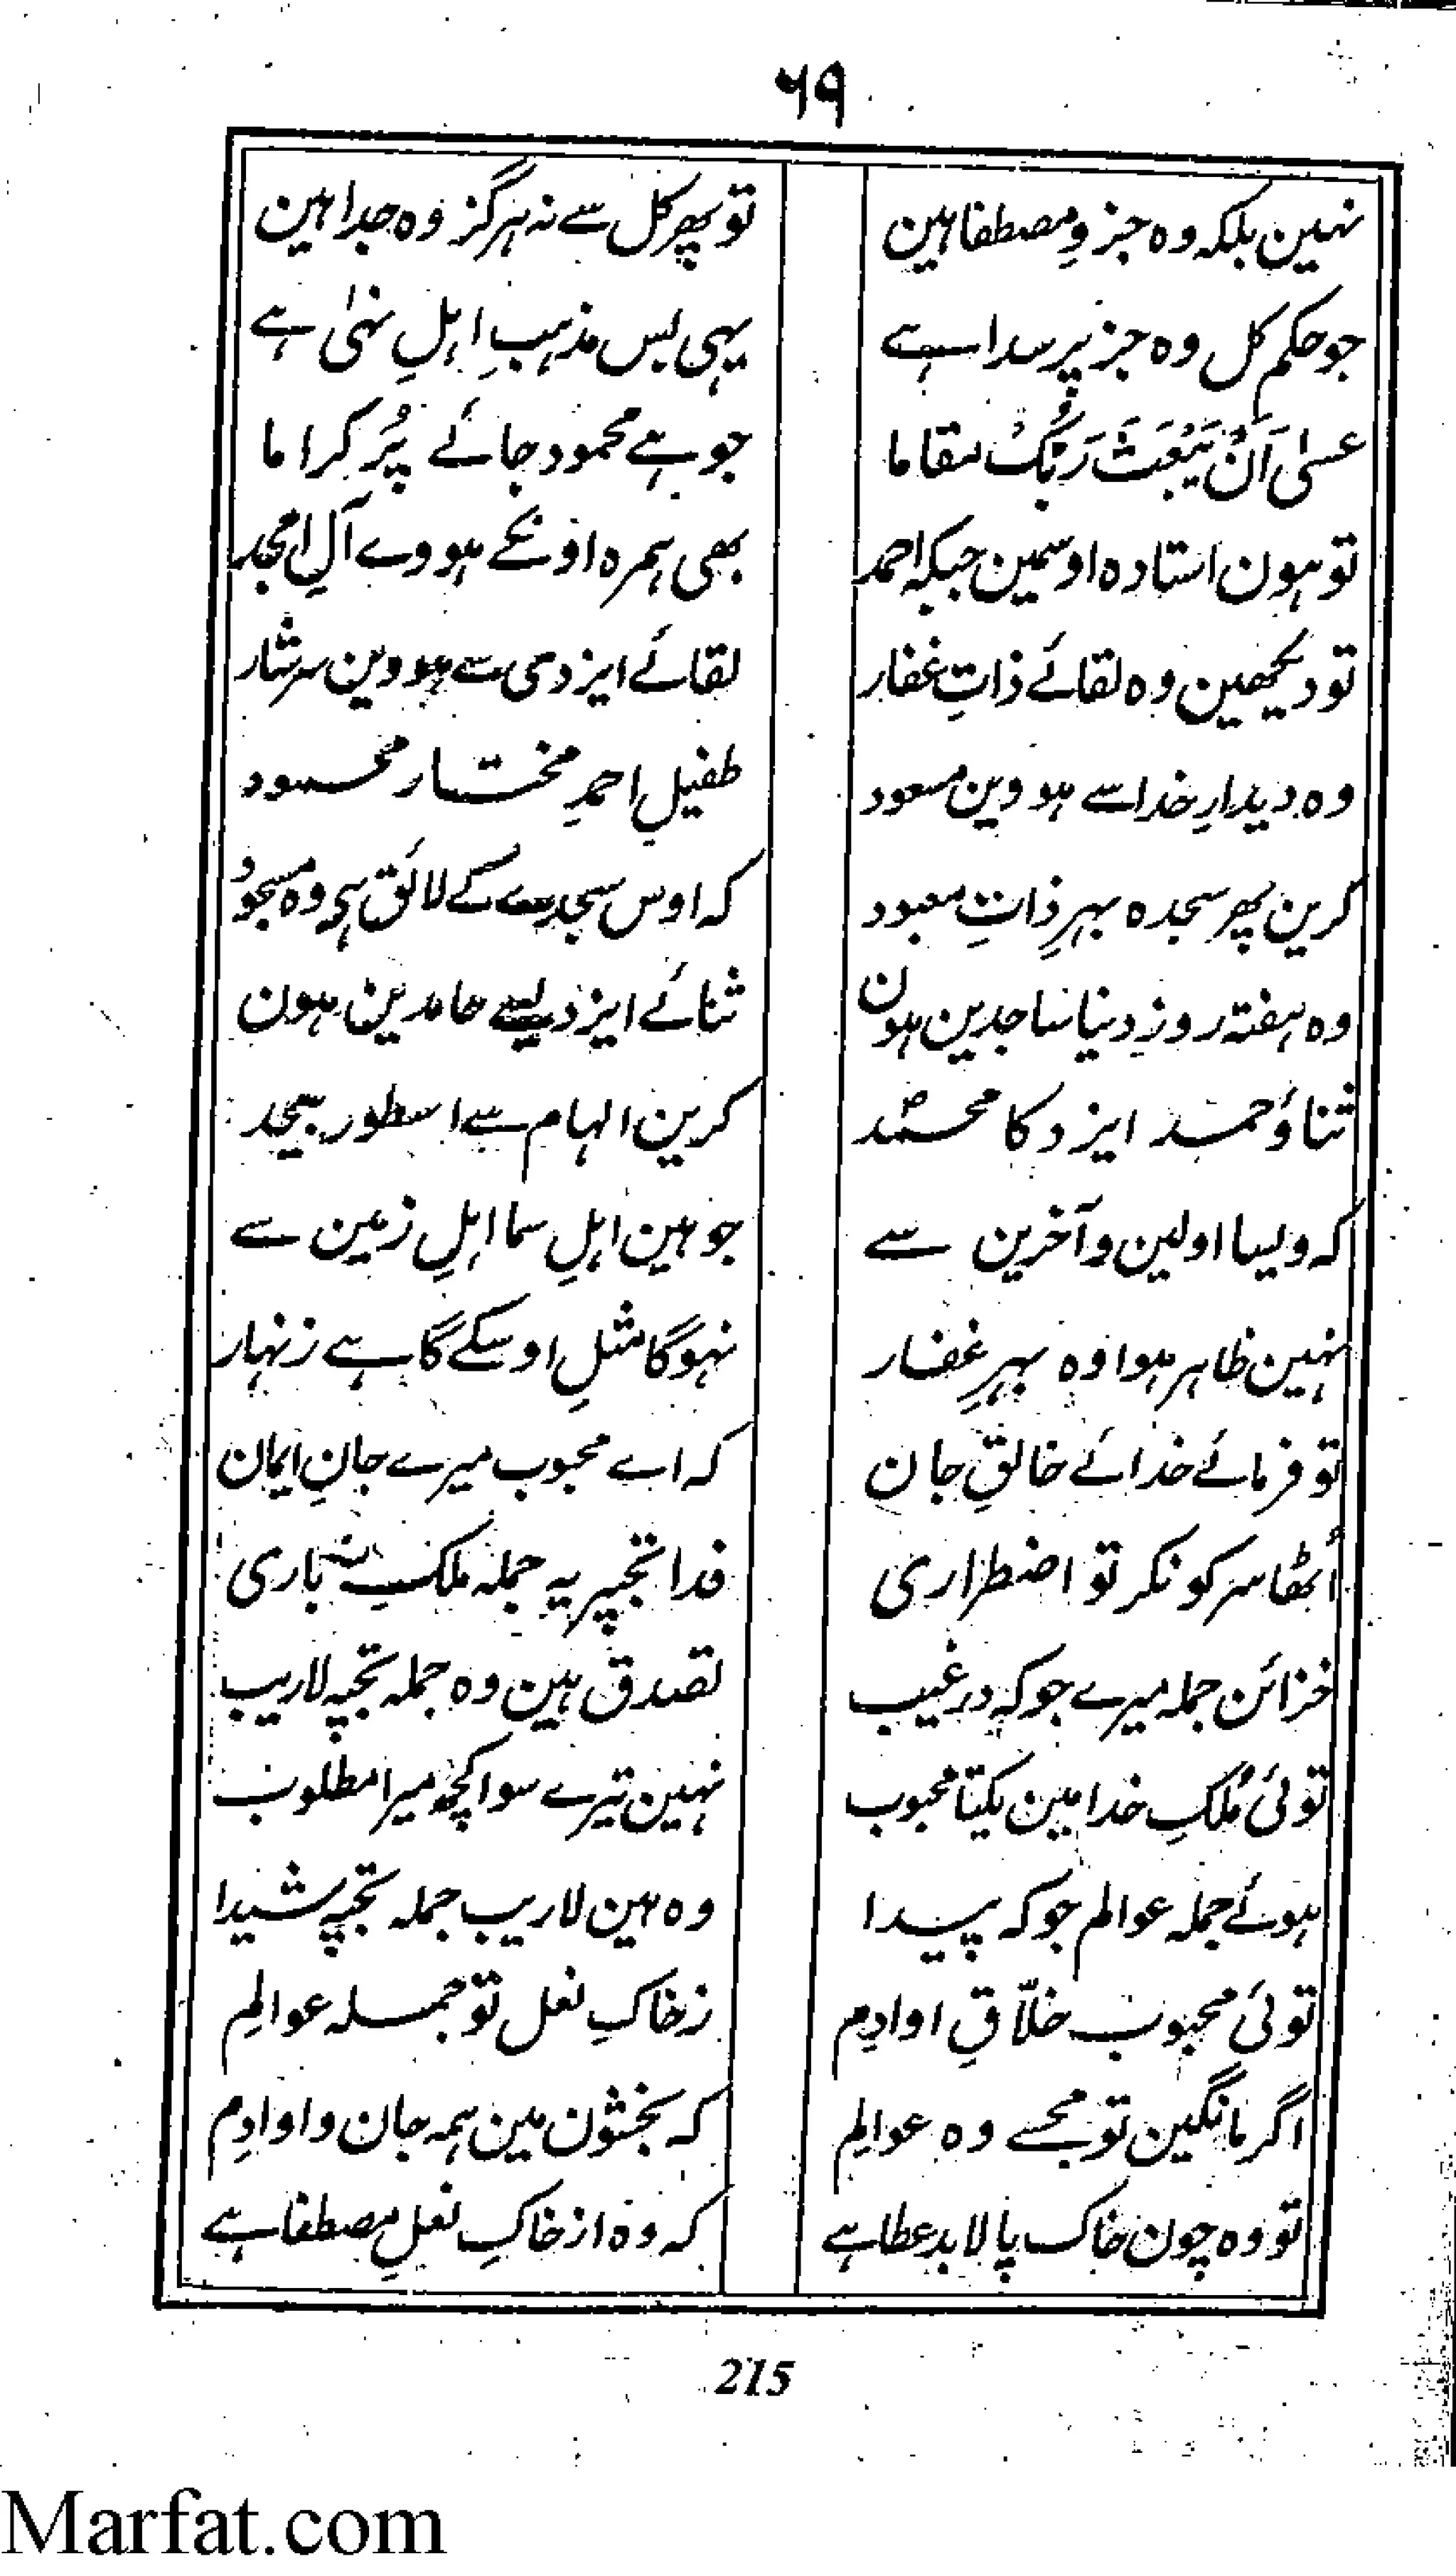 ۶۹
نہین بلکہ وہ جزوِ مصطفا ہین تو پھر کل سے نہ ہرگز وہ جدا ہین
جو حکم کل وہ جز پر سدا ہے یہی بس مذہبِ اہلِ نہیٰ ہے
عسیٰ اَنْ یَّبْعَثَ رَبُّکَ مقاما جو ہے محمود جائے پُر کراما
تو ہون استادہ اوسمین جبکہ احمد بھی ہمرہ اونکے ہووے آلِ امجد
تو دیکھین وہ لقائے ذاتِ غفار لقائے ایزدی سے ہووین سرشار
وہ دیدارِ خدا سے ہووین مسعود طفیلِ احمدِ مختار محمود
کرین پھر سجدہ بہرِ ذاتِ معبود کہ اوس سجدے کے لائق ہی وہ مسجود
وہ ہفتہ روزِ دنیا ساجدین ہون ثنائے ایزد لیے حامدین ہون
ثنا وُ حمد ایزد کا محمدؐ کرین الہام سے اسطور بیحد
کہ ویسا اولین و آخرین سے جو ہین اہلِ سما اہلِ زمین سے
نہین ظاہر ہوا وہ بہرِ غفار نہوگا مثلِ اوسکے گا ہے زنہار
تو فرمائے خدائے خالقِ جان کہ اے محبوب میرے جانِ ایمان
اُٹھا سر کو نکر تو اضطراری فدا تجھپر یہ جملہ ملکتِ باری
خزائن جملہ میرے جو کہ در غیب تصدق ہین وہ جملہ تجھپہ لاریب
توئی مُلکِ خدا مین یکتا محبوب نہین تیرے سوا کچھ میرا مطلوب
ہوئے جملہ عوالم جو کہ پیدا وہ ہین لاریب جملہ تجھپہ شیدا
توئی محبوب خلّاقِ اوادِم زخاکِ نعل تو جملہ عوالِم
اگر مانگین تو مجھسے وہ عوالِم کہ بخشون مین ہمہ جان و اوادِم
تو وہ چون خاک پا لابد عطا ہے کہ وہ از خاکِ نعلِ مصطفا ہے
215
Marfat.com